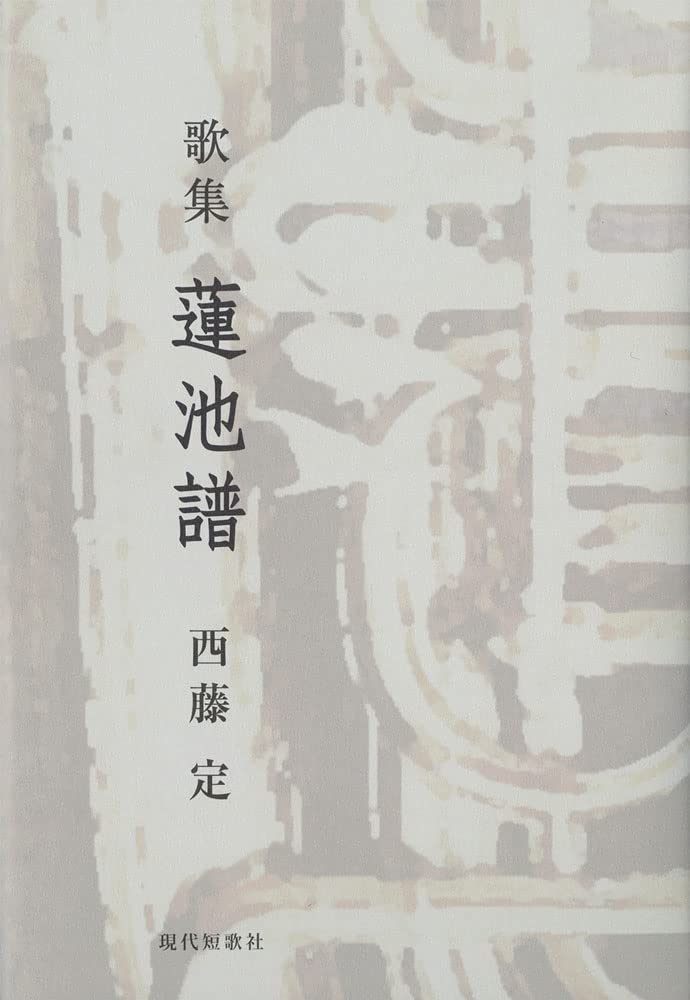 歌集 蓮池譜 西藤 定
現代短歌社